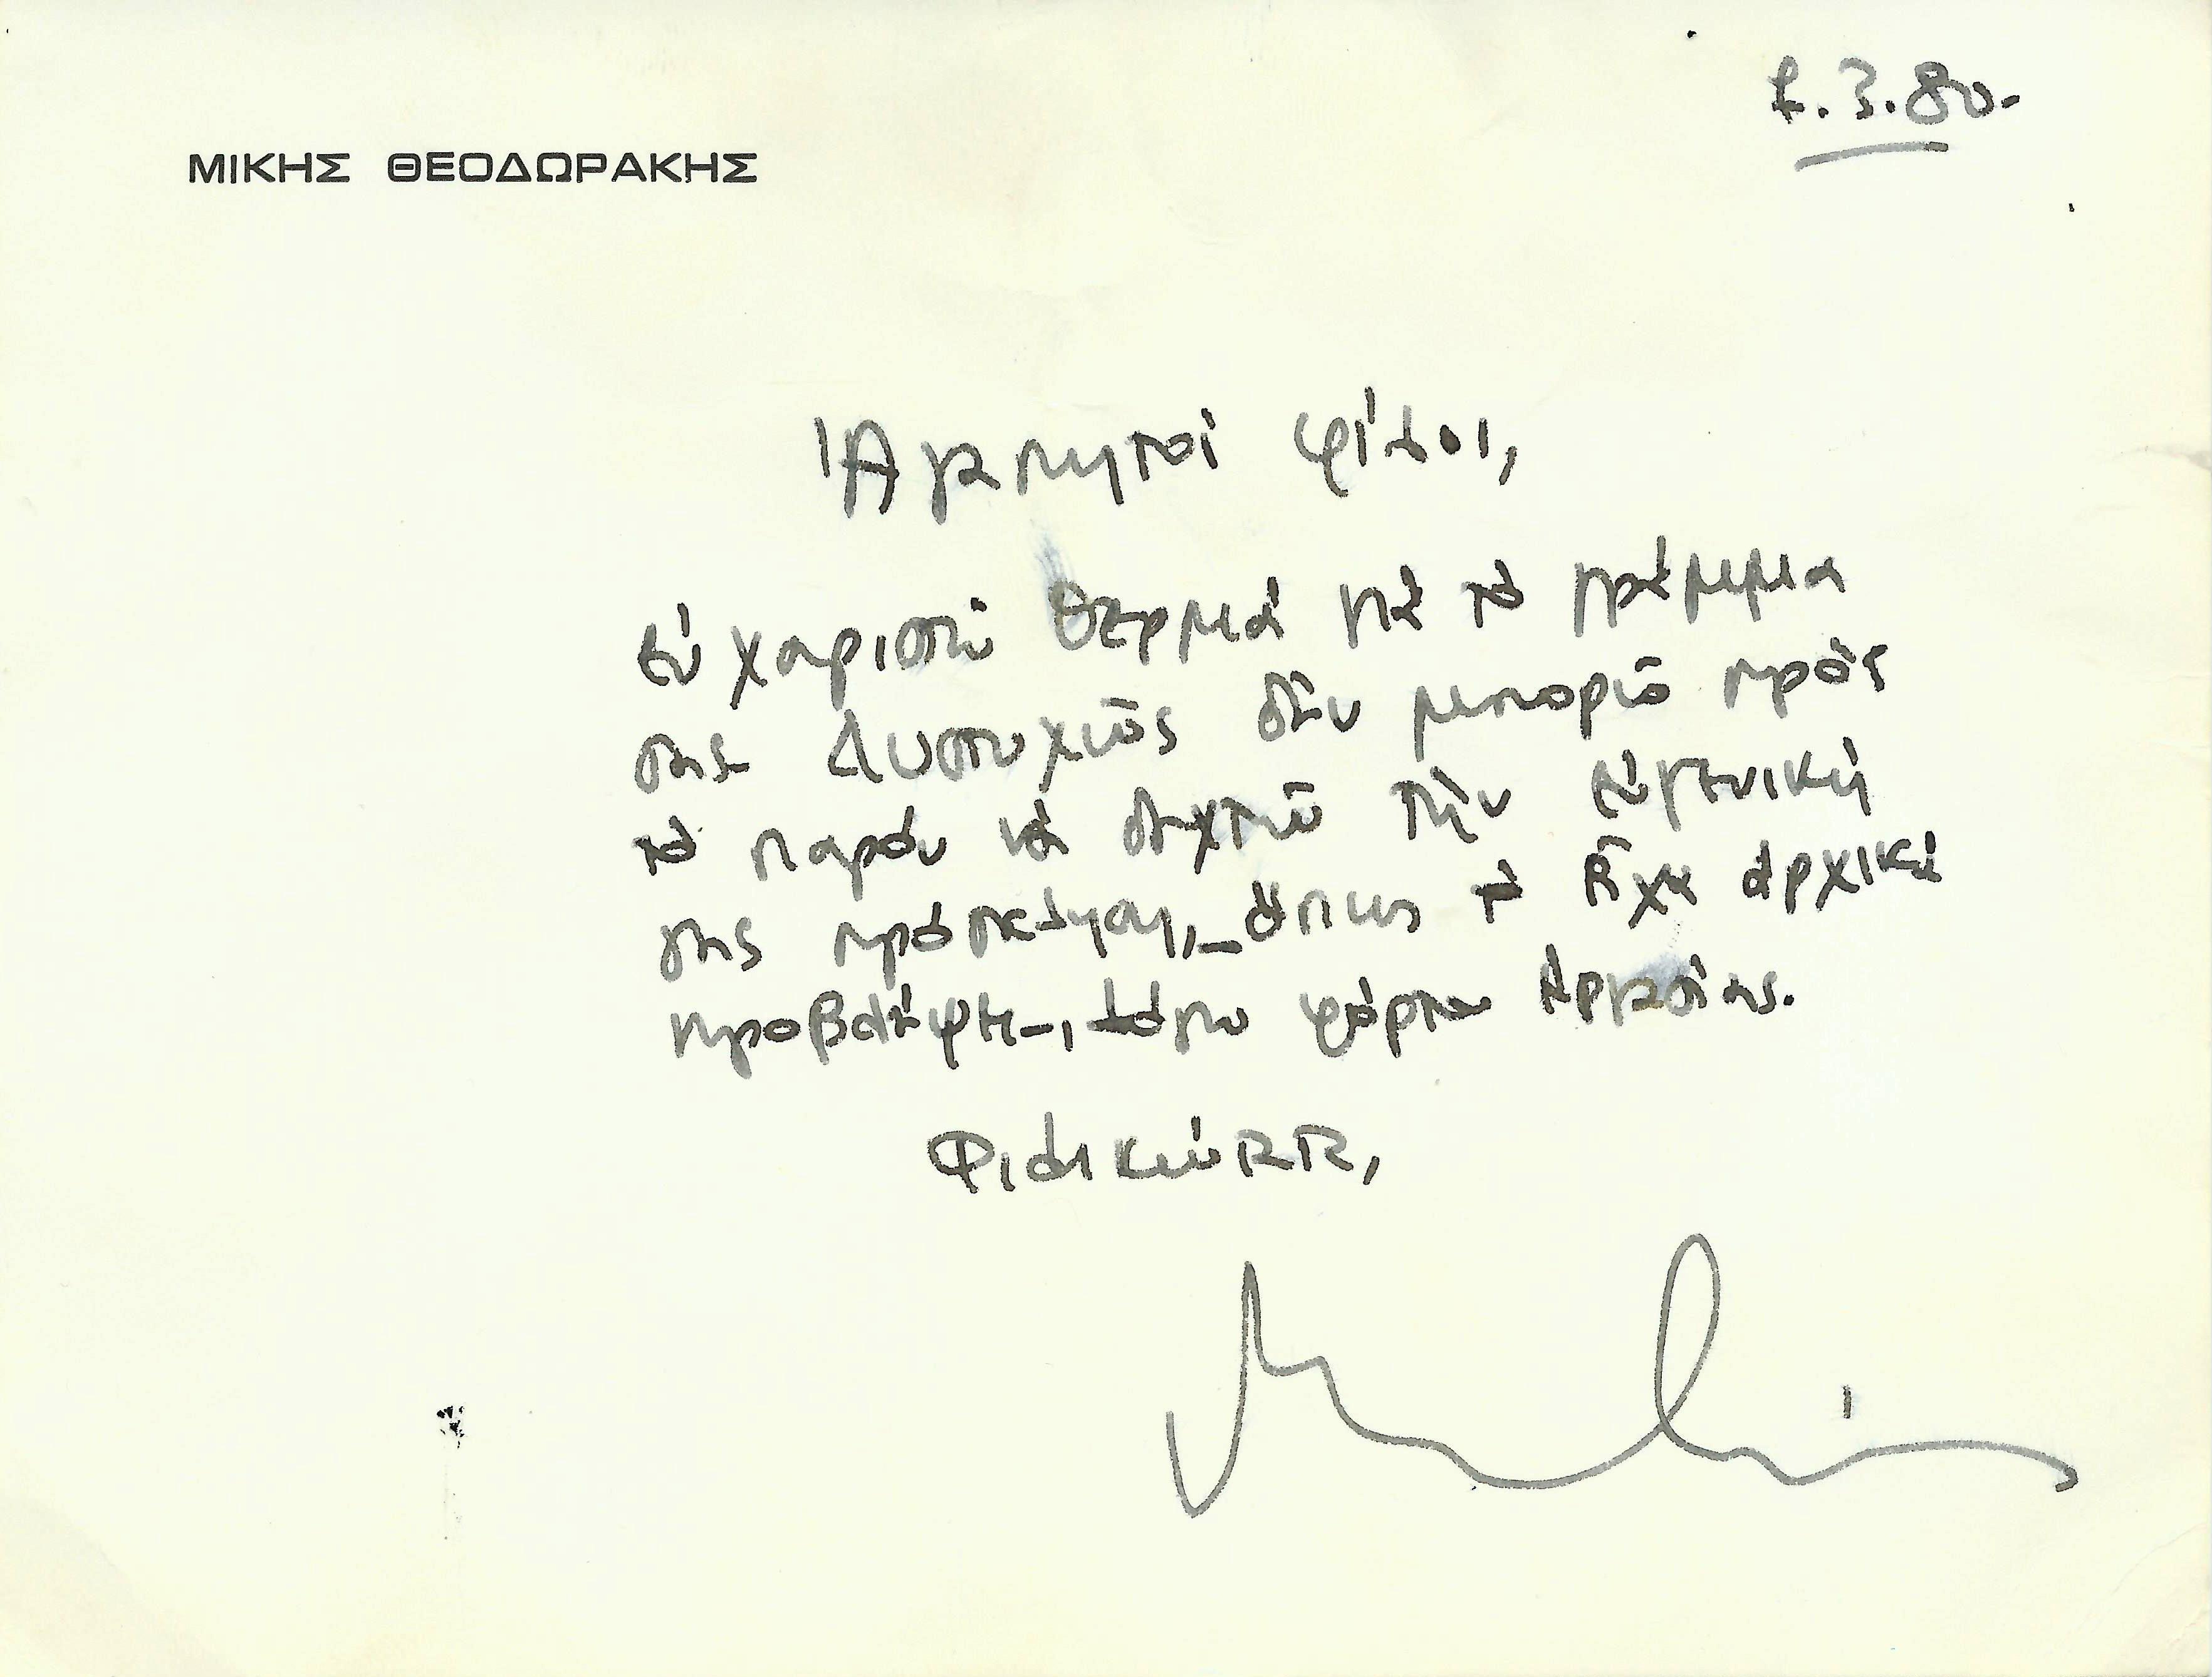 2.3.80.
ΜΙΚΗΣ ΘΕΟΔΩΡΑΚΗΣ
Ἀγαπητοί φίλοι,
εὐχαριστῶ θερμά γιά τό γράμμα
σας. Δυστυχῶς δέν μπορῶ πρός
τό παρόν νά δεχτῶ τήν εὐγενική
σας πρόσκληση, – ὅπως τό εἶχα ἀρχικά
προβλέψει –, λόγω φόρτου ἐργασίας.
Φιλικώτατα,